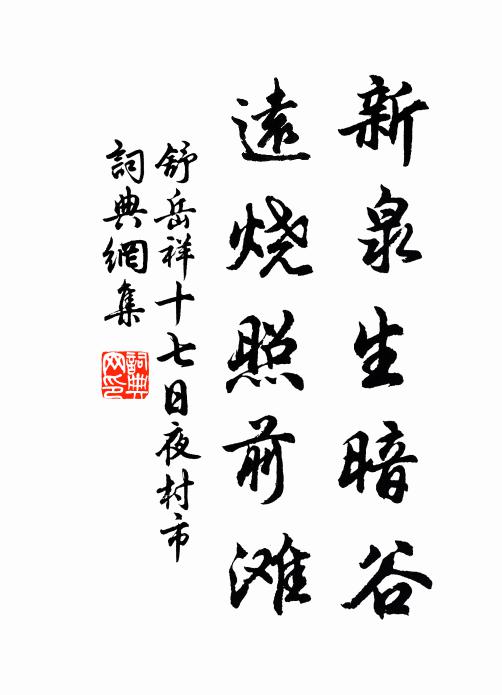 新泉生暗谷
遠烧照前滩
舒岳祥十七日夜村市
詞典網集
詞典网印